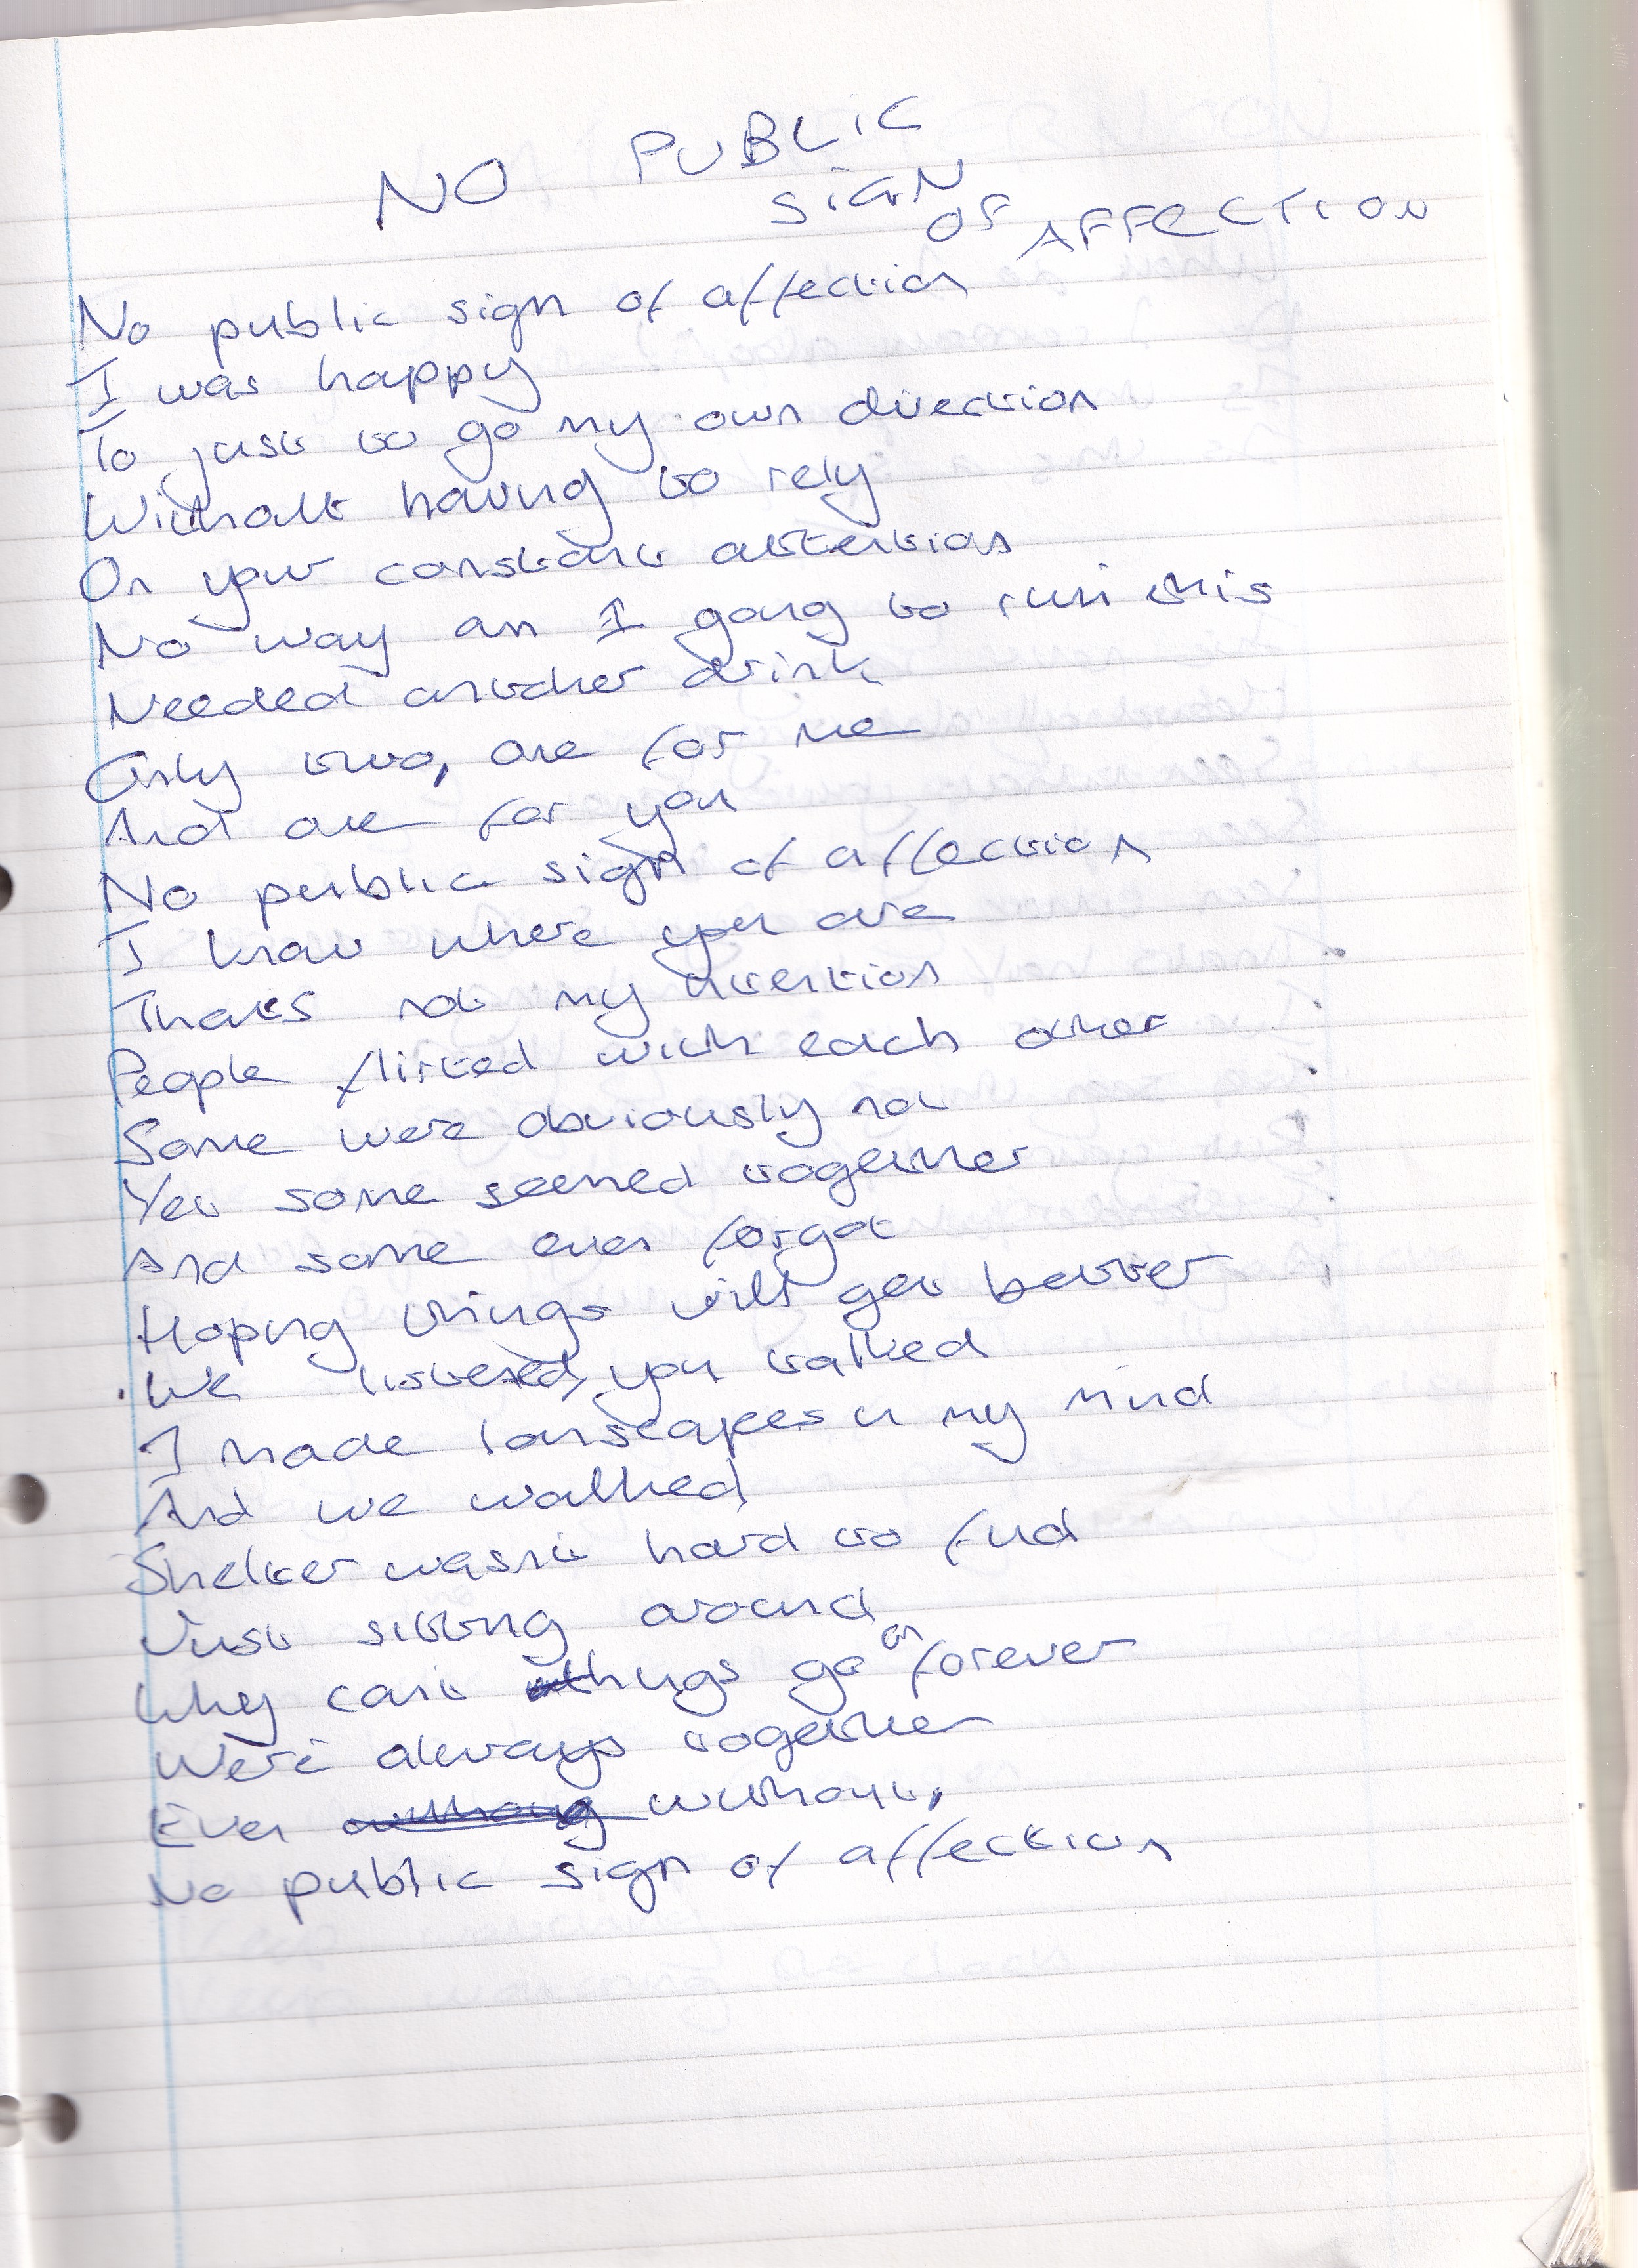 NO PUBLIC
SIGN
OF AFFECTION
No public sign of affection
I was happy
To just to go my own direction
Without having to rely
On your constant attention
No way am I going to ruin this
Needed another drink
Only two, one for me
And one for you
No public sign of affection
I know where you are
Thats not my direction
People flirted with each other
Some were obviously not
Yet some seemed together
And some even forgot
Hoping things will get better
We listened, you talked
I made lanscapes in my mind
And we walked
Shelter wasnt hard to find
Just sitting around
Why cant things go on forever
Were always together
Even without,
No public sign of affection